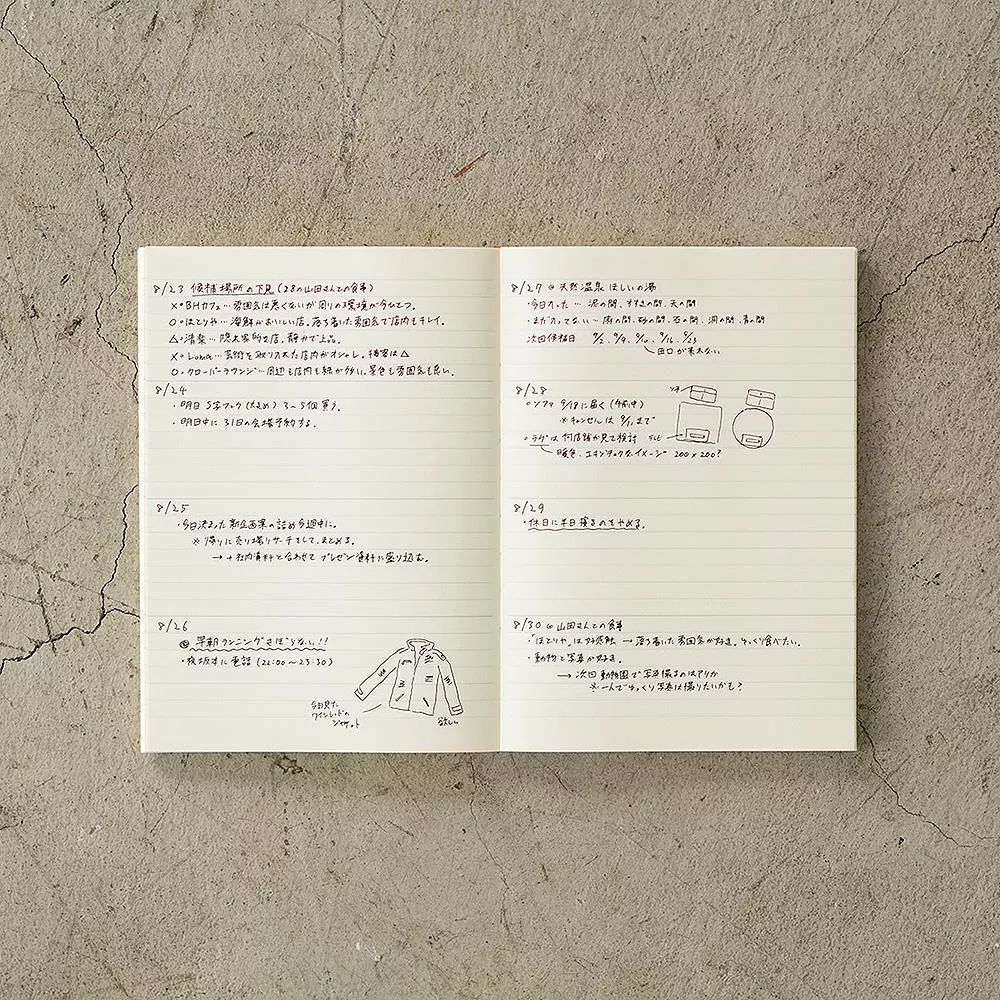 8/23 候補場所の下見(28の山田さんとの食事)
×・BHカフェ…雰囲気は悪くないが周りの環境が今ひとつ。
○・ほとりや…海鮮がおいしい店。落ち着いた雰囲気で店内もキレイ。
△・清楽…隠れ家的な店。静かで上品。
×・Luma…芸術を取り入れた店内がオシャレ。接客は△
○・クローバーラウンジ…周辺も店内も緑が多い。景色も雰囲気も良い。
8/24
・明日 S字フック(大きめ) 3〜5個買う。
・明日中に31日の会場予約する。
8/25
・今日決まった新企画案の詰め今週中に。
※帰りに売り場リサーチをして、まとめる。
→+社内資料と合わせてプレゼン資料に盛り込む。
8/26
◎早朝ランニングさぼらない!!
・夜坂本に電話(22:00〜23:30)
今日見た
ワインレッドの
ジャケット
欲しい
8/27 @天然温泉 ほしいの湯
・今日入った… 泥の間、すすきの間、天の間
・まだ入ってない… 雨の間、砂の間、石の間、洞の間、青の間
次回候補日 9/2、9/9、9/10、9/16、9/23
田口が来れない
8/28
○ソファ 9/18に届く(午前中)
※キャンセルは 9/11まで
○ラグは何店舗か見て検討
暖色、エキゾチックなイメージ 200×200?
ソファ
テレビ
8/29
・休日に半日寝るのをやめる。
8/30 @山田さんとの食事
・「ほとりや」は好感触 → 落ち着いた雰囲気が好き。ゆっくり食べたい。
・動物と写真が好き。
→ 次回動物園で写真撮るのはアリか
※一人でゆっくり写真は撮りたいかも?